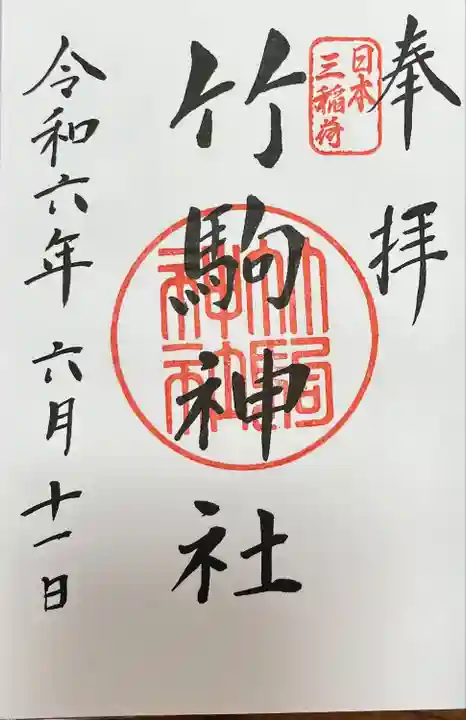 奉拝
日本
三稲荷
竹駒神社
竹駒
神社
令和六年 六月十一日